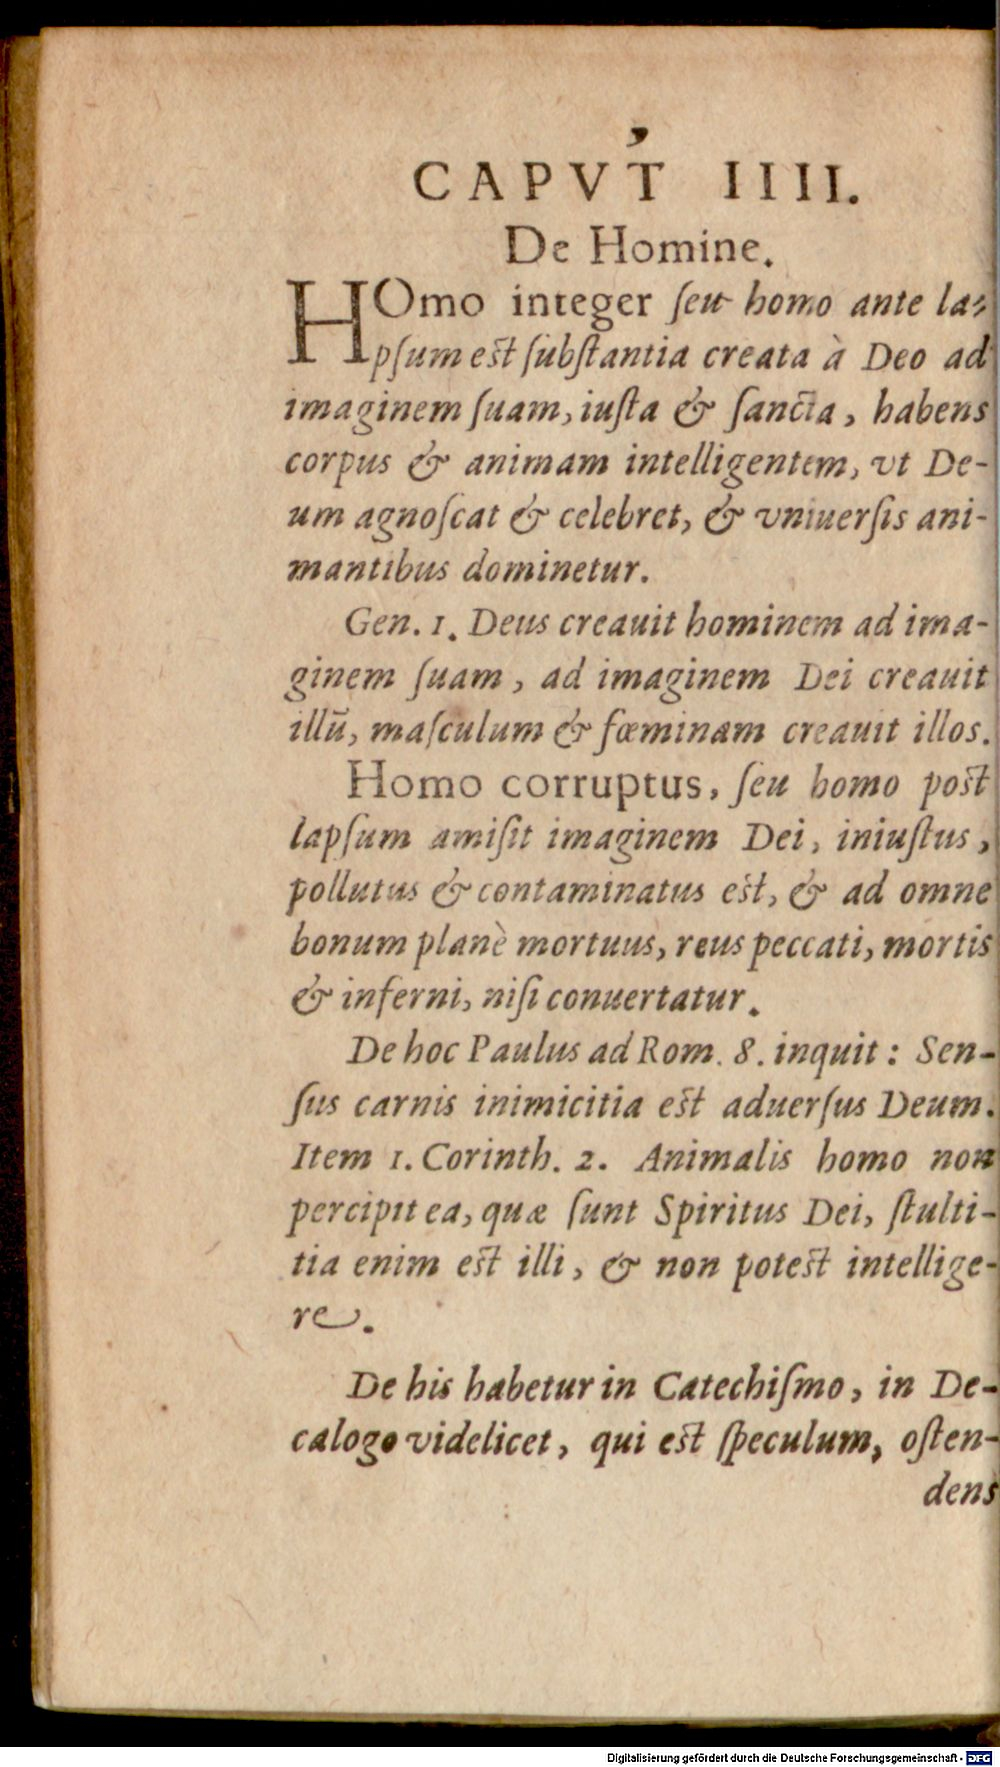 CAPVT IIII.
De Homine.
HOmo integer ſeu homo ante la-
pſum eſt ſubſtantia creata à Deo ad
imaginem ſuam, iuſta & ſancta, habens
corpus & animam intelligentem, vt De-
um agnoſcat & celebret, & vniuerſis ani-
mantibus dominetur.
Gen. 1. Deus creauit hominem ad ima-
ginem ſuam, ad imaginem Dei creauit
illū, maſculum & fœminam creauit illos.
Homo corruptus, ſeu homo poſt
lapſum amiſit imaginem Dei, iniuſtus,
pollutus & contaminatus eſt, & ad omne
bonum planè mortuus, reus peccati, mortis
& inferni, niſi conuertatur.
De hoc Paulus ad Rom. 8. inquit: Sen-
ſus carnis inimicitia eſt aduerſus Deum.
Item 1. Corinth. 2. Animalis homo non
percipit ea, quæ ſunt Spiritus Dei, ſtulti-
tia enim eſt illi, & non poteſt intellige-
re.
De his habetur in Catechiſmo, in De-
calogo videlicet, qui eſt ſpeculum, oſten-
dens
Digitalisierung gefördert durch die Deutsche Forschungsgemeinschaft - DFG